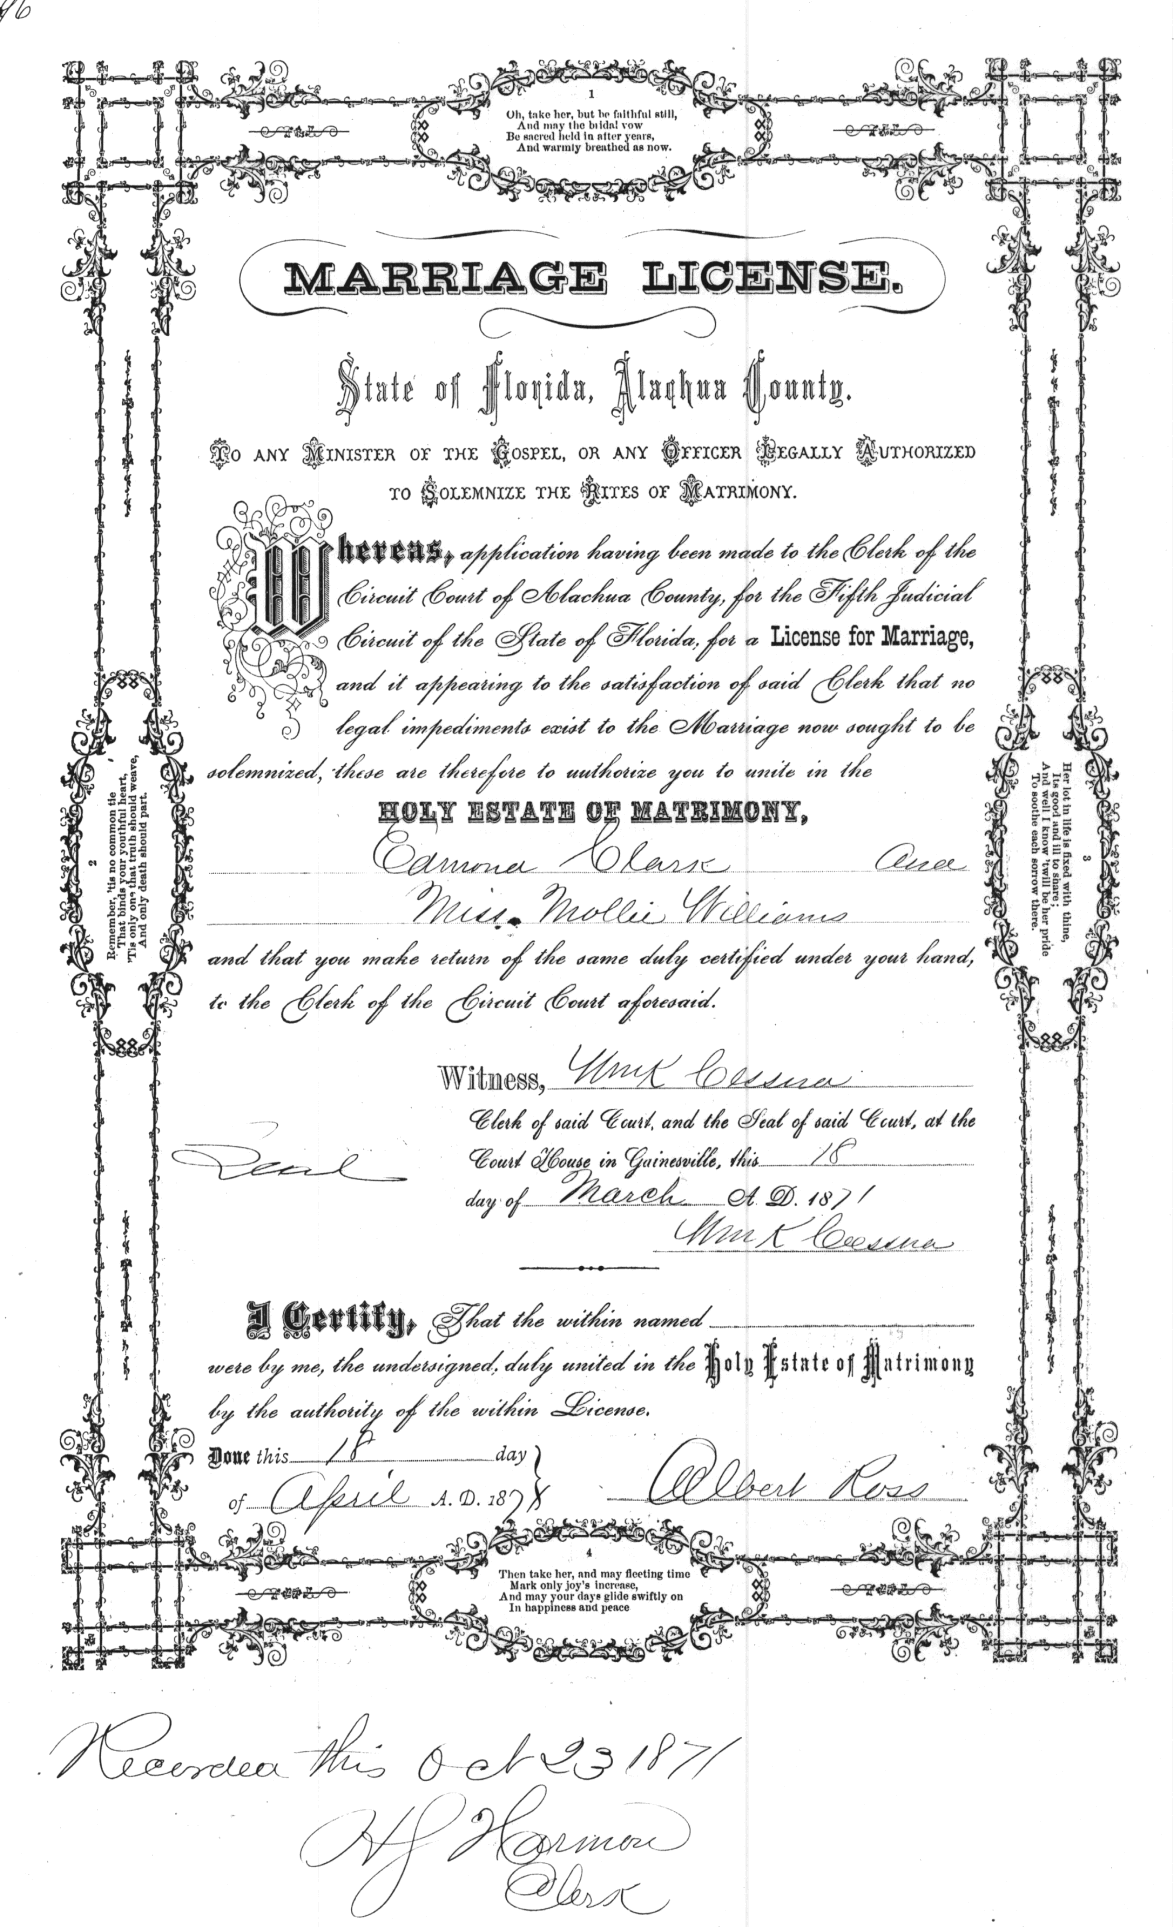 96
1
Oh, take her, but be faithful still,
And may the bridal vow
Be sacred held in after years,
And warmly breathed as now.
MARRIAGE LICENSE.
State of Florida, Alachua County.
TO ANY MINISTER OF THE GOSPEL, OR ANY OFFICER LEGALLY AUTHORIZED
TO SOLEMNIZE THE RITES OF MATRIMONY.
Whereas, application having been made to the Clerk of the
Circuit Court of Alachua County, for the Fifth Judicial
Circuit of the State of Florida, for a License for Marriage,
and it appearing to the satisfaction of said Clerk that no
legal impediments exist to the Marriage now sought to be
solemnized, these are therefore to authorize you to unite in the
HOLY ESTATE OF MATRIMONY,
Edmond Clark And
Miss. Mollie Williams
and that you make return of the same duly certified under your hand,
to the Clerk of the Circuit Court aforesaid.
2
Remember, 'tis no common tie
That binds your youthful heart,
'Tis only one that truth should weave,
And only death should part.
3
Her lot in life is fixed with thine,
Its good and ill to share;
And well I know 'twill be her pride
To soothe each sorrow there.
Witness, Wm K Cessna
Clerk of said Court, and the Seal of said Court, at the
Seal
Court House in Gainesville, this 18
day of March A. D. 1871
Wm K Cessna
I Certify, That the within named
were by me, the undersigned, duly united in the Holy Estate of Matrimony
by the authority of the within License.
Done this 18 day
of April A. D. 187
Albert Ross
4
Then take her, and may fleeting time
Mark only joy's increase,
And may your days glide swiftly on
In happiness and peace
Recorded this Oct 23 1871
H J Harmon
Clerk